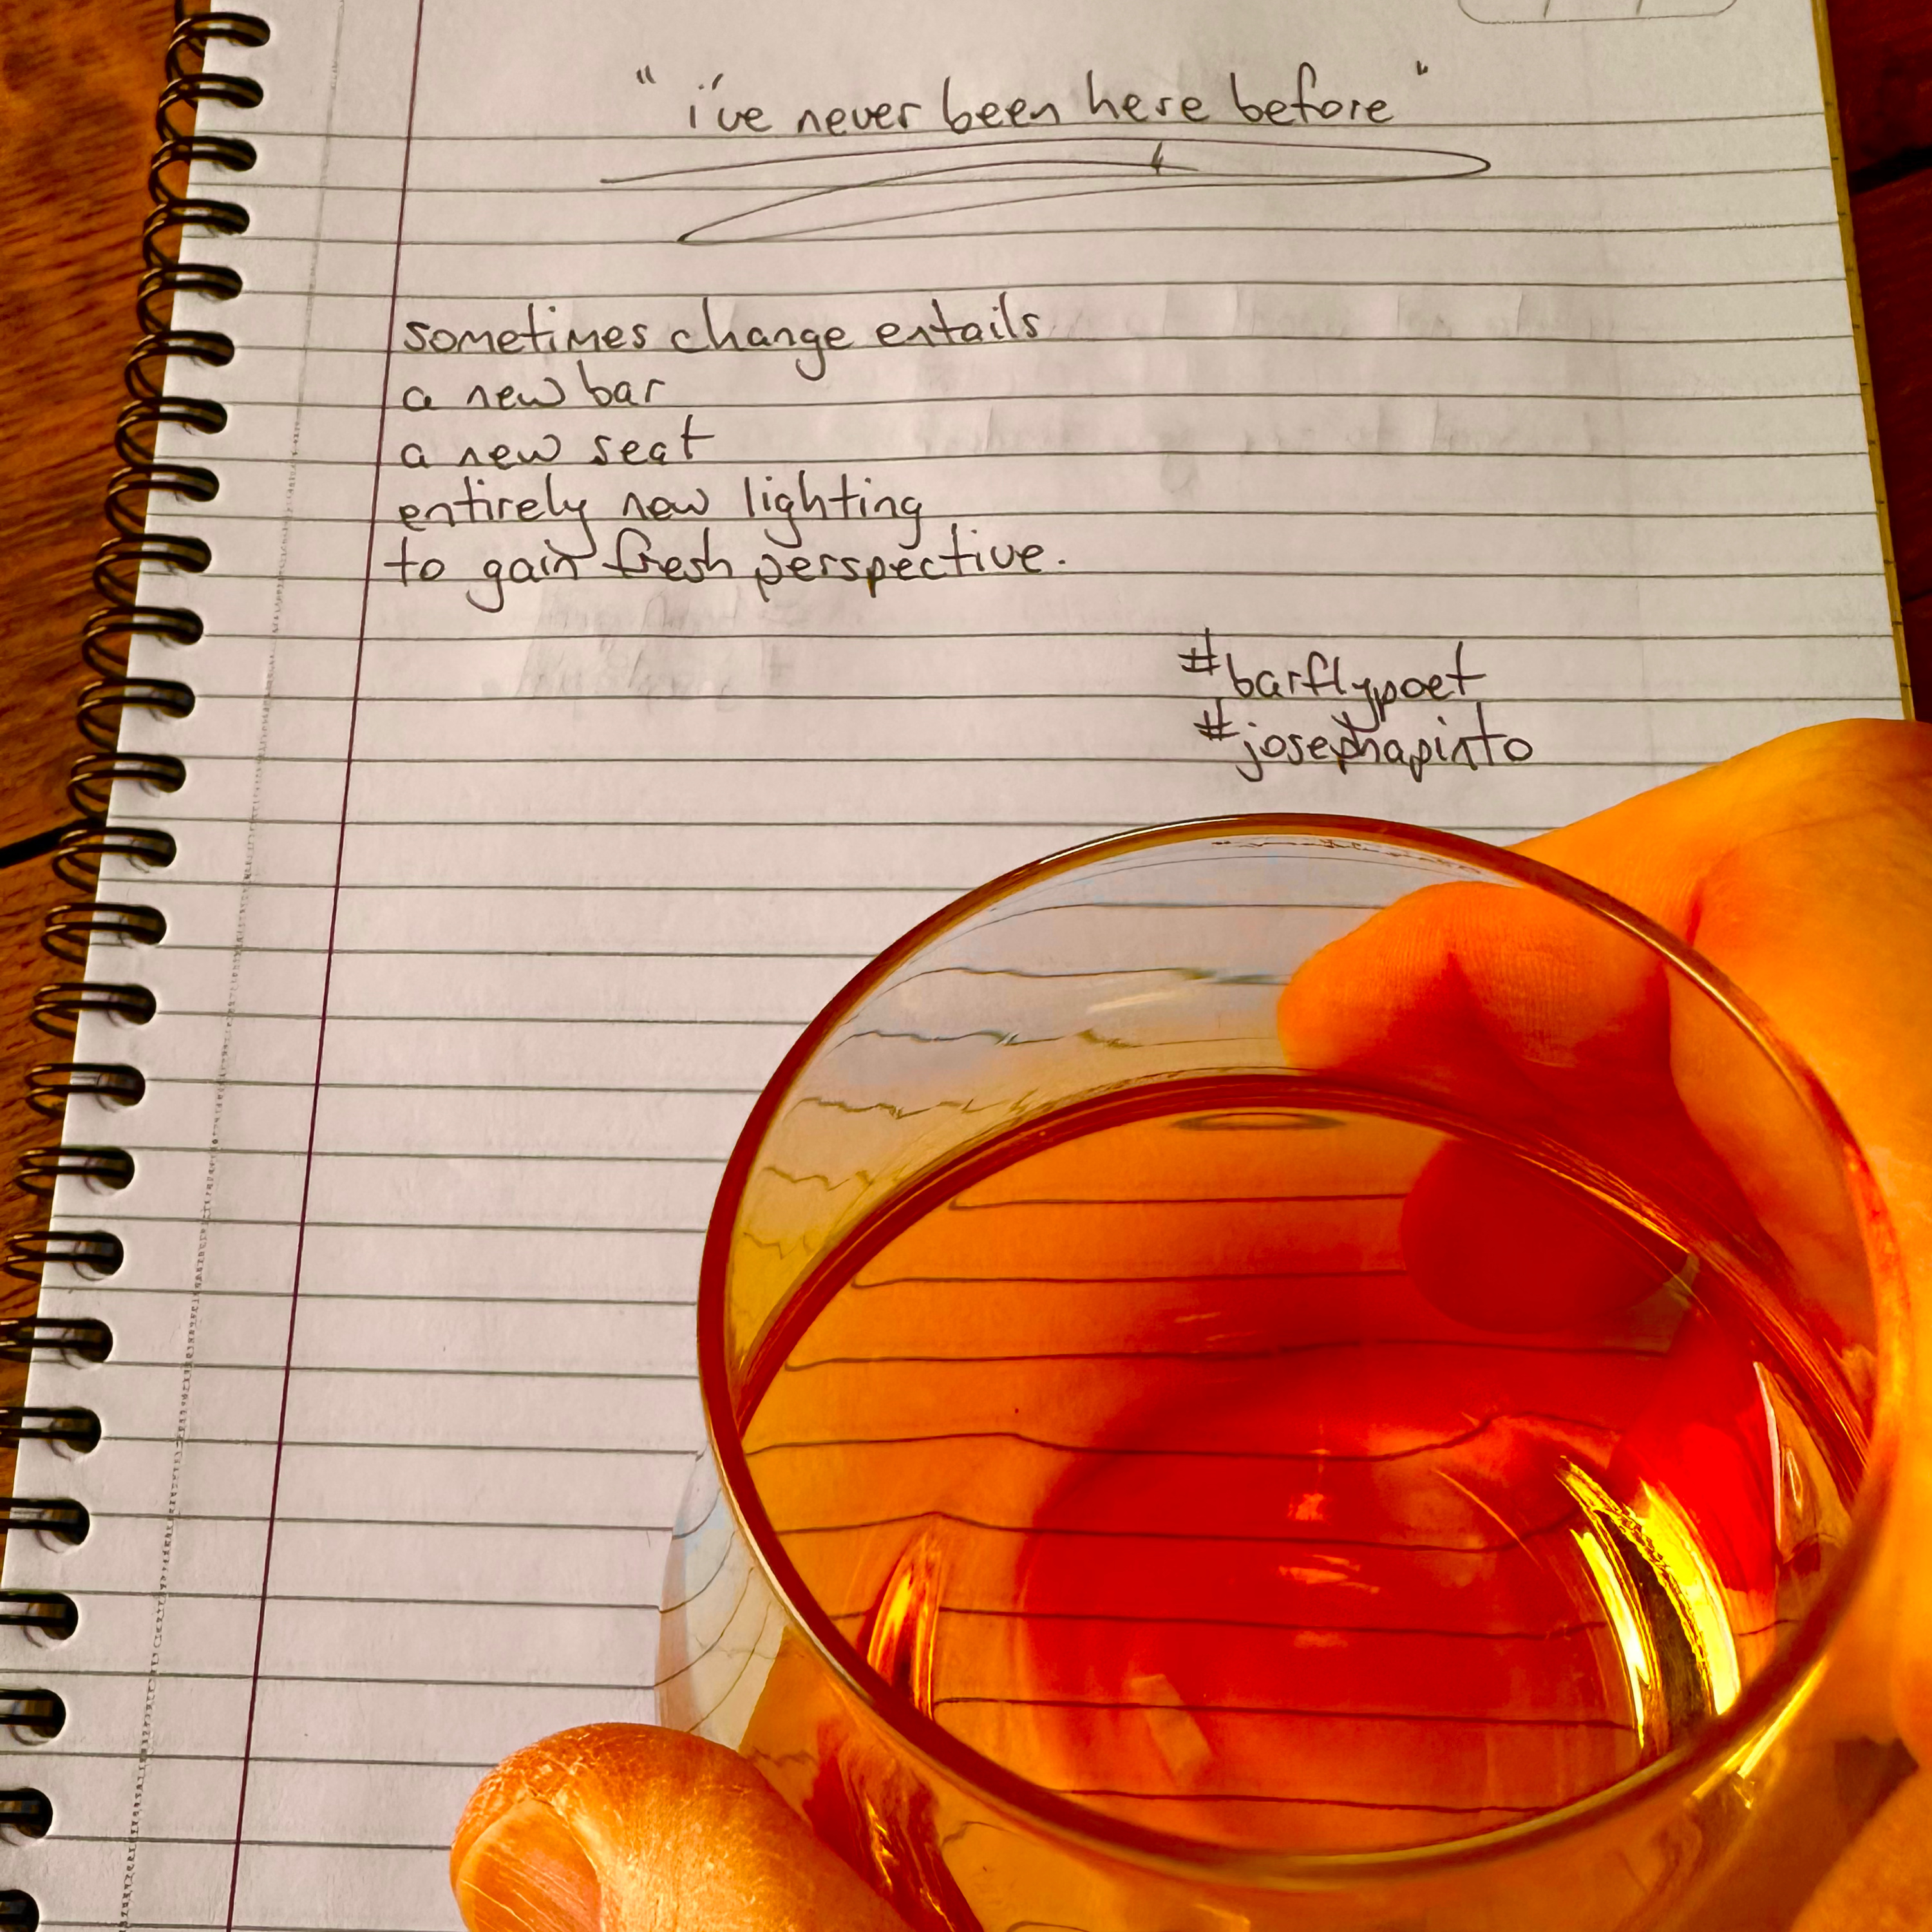 "i've never been here before"
sometimes change entails
a new bar
a new seat
entirely new lighting
to gain fresh perspective.
#barflypoet
#josephapinto